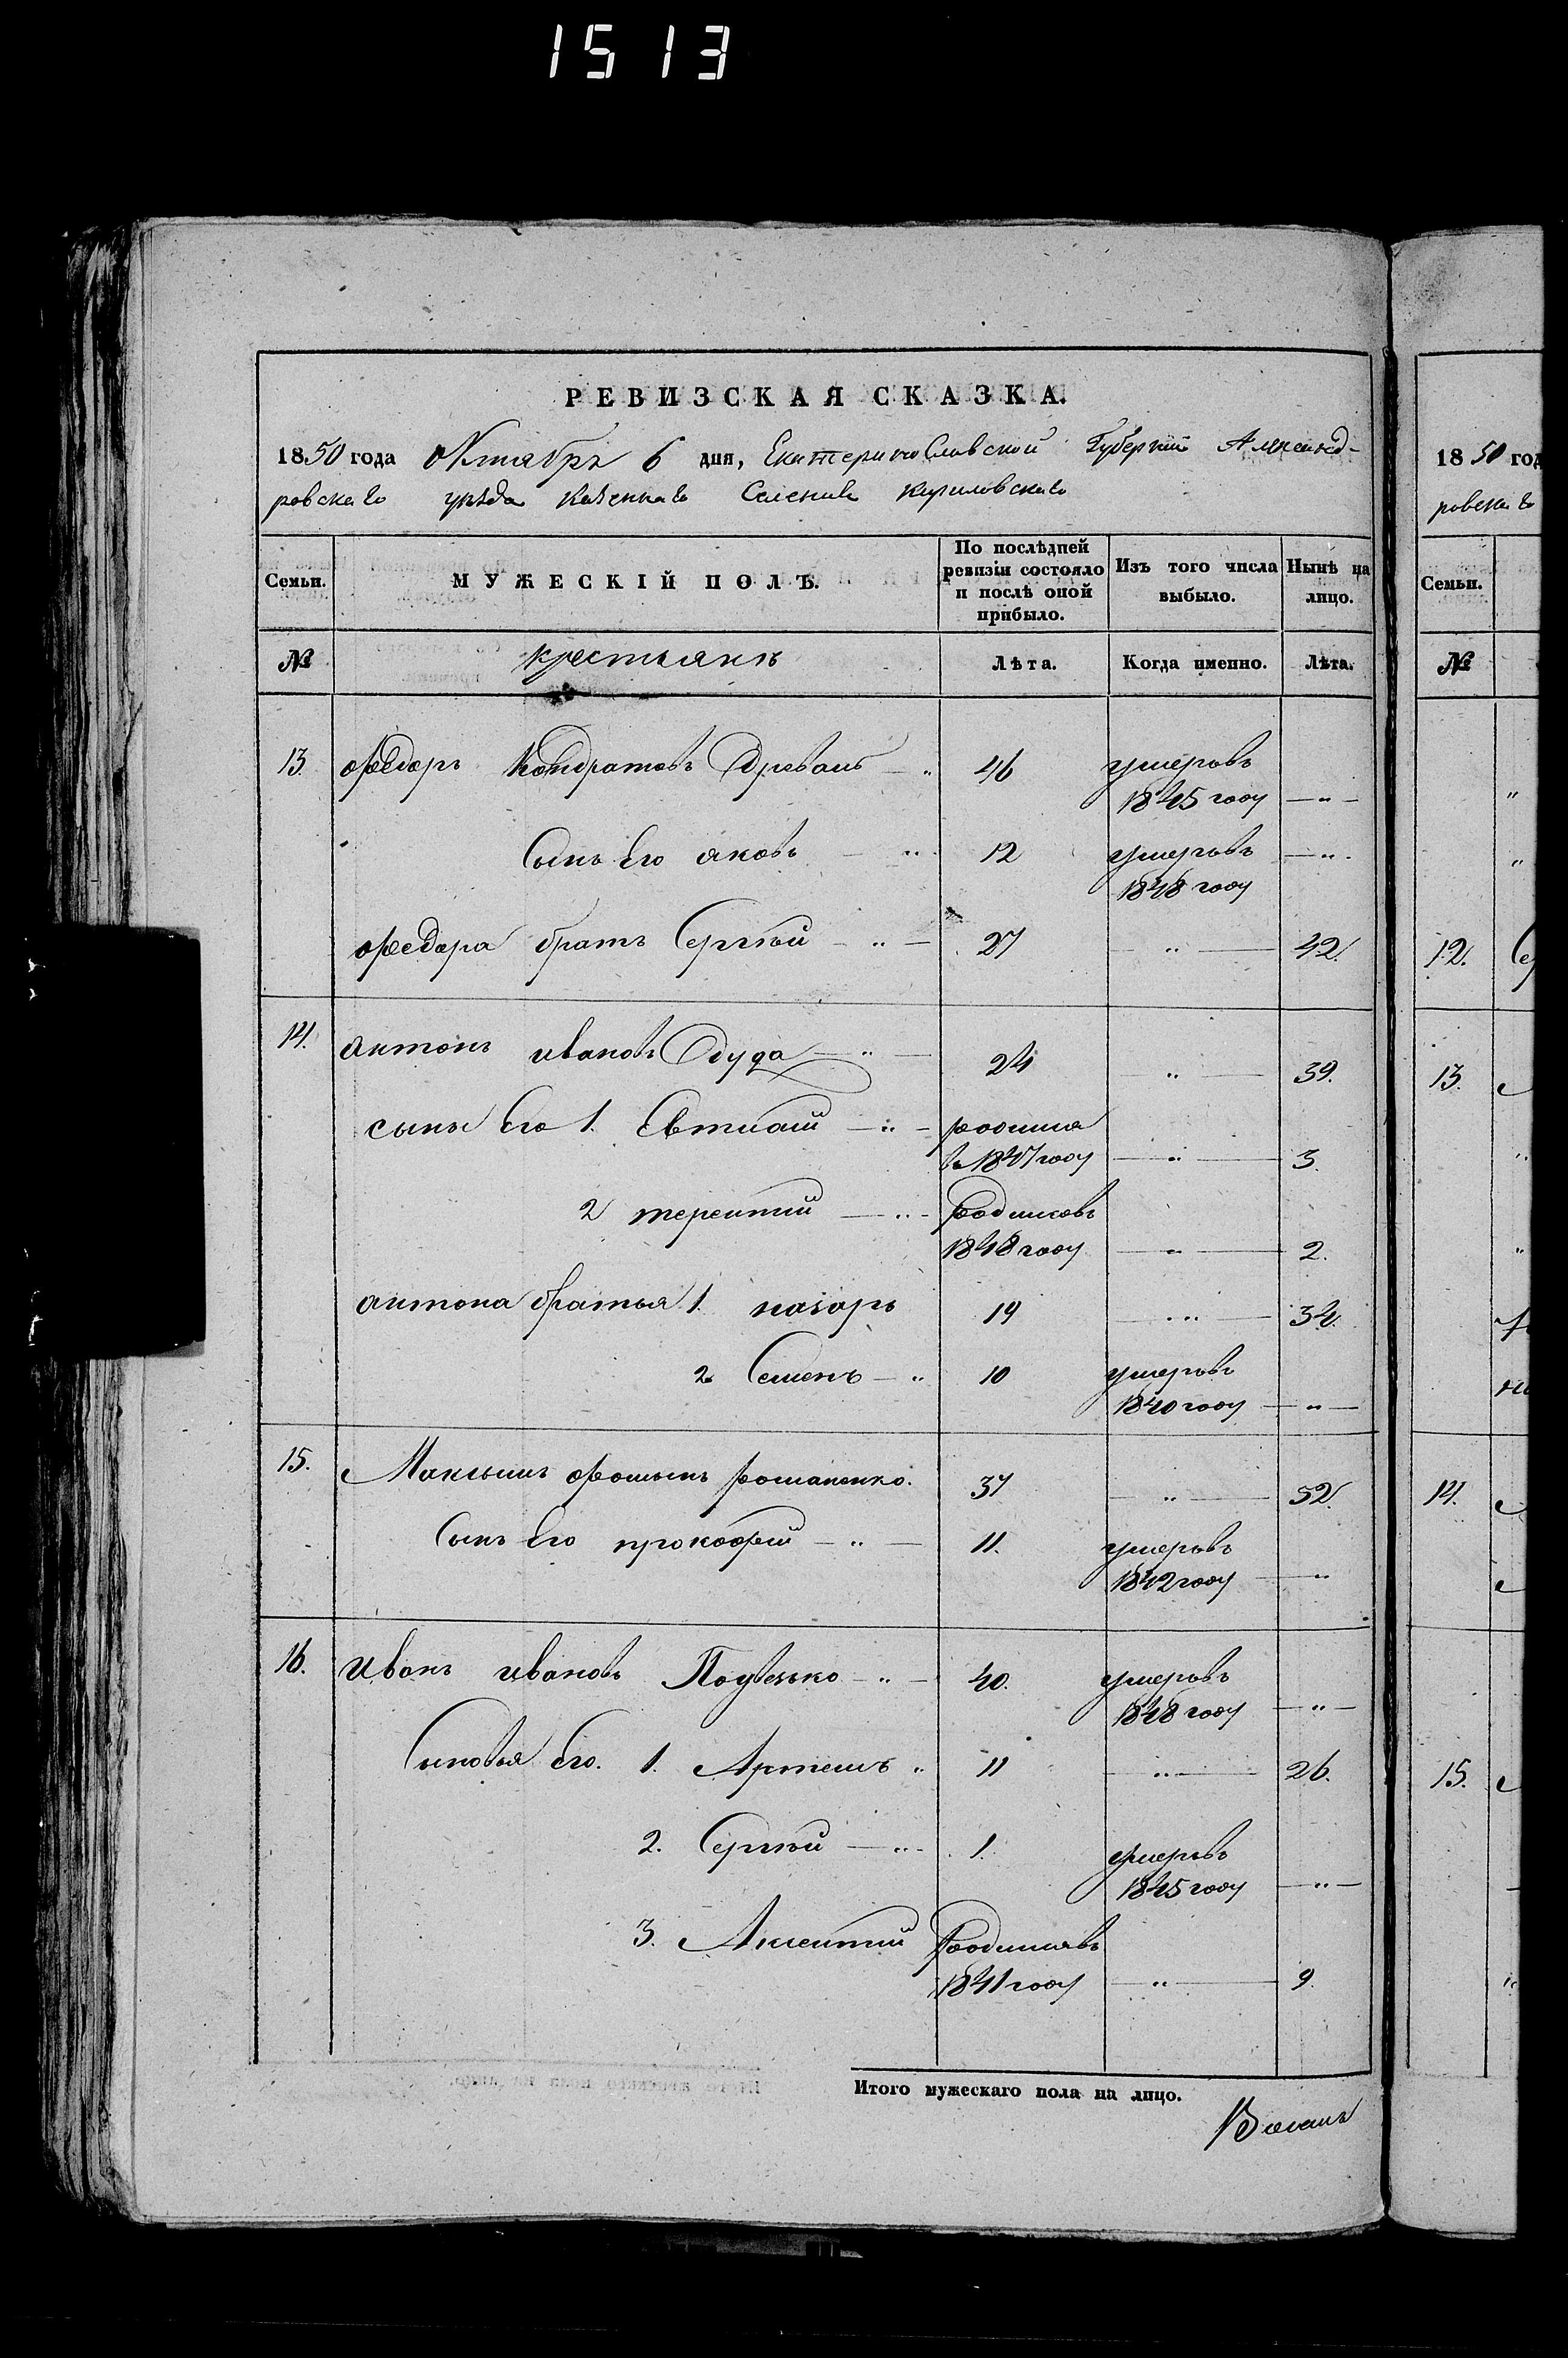 1513
РЕВИЗСКАЯ СКАЗКА.
1850 года Октября 6 дня, Екатеринославской Губернии Александ-
ровскаго уезда Казеннаго Селения Кириловскаго
Семьи. МУЖЕСКІЙ ПОЛЪ. По послѣдней ревизіи состояло и послѣ оной прибыло. Изъ того числа выбыло. Нынѣ на лицо.
№ крестьянъ Лѣта. Когда именно. Лѣта.
13. Федоръ Кондратовъ 46 умеръ въ
1845 году — " —
Сынъ Его яковъ — " 12 умеръ въ — " —
1848 году
Федора братъ Сергѣй — " — 27 " — 42.
14. антонъ ивановъ Дуда — " — 24 — " — 39.
сыны Его 1. Евтихий — " — родился
въ 1847 году — " — 3.
2 терентий — " — Родился въ
1848 году — " — 2.
антона братья 1. назаръ 19 — " — 34.
2 Семенъ — " 10 умеръ въ
1840 году — " —
15. Максимъ фоминъ романенко. 37 — " — 52.
Сынъ Его прокофий — " — 11. умеръ въ
1842 году — "
16. иванъ ивановъ 40. умеръ въ
1848 году — " —
Сыновья Его. 1. Артемъ " 11 — " — 26.
2. Сергѣй — " — 1. умеръ въ
1845 году — " —
3. Родился въ
1841 году — " — 9.
Итого мужескаго пола на лицо.
1850 год
ровскаго
Семьи.
№
12. Се
13.
14.
15.